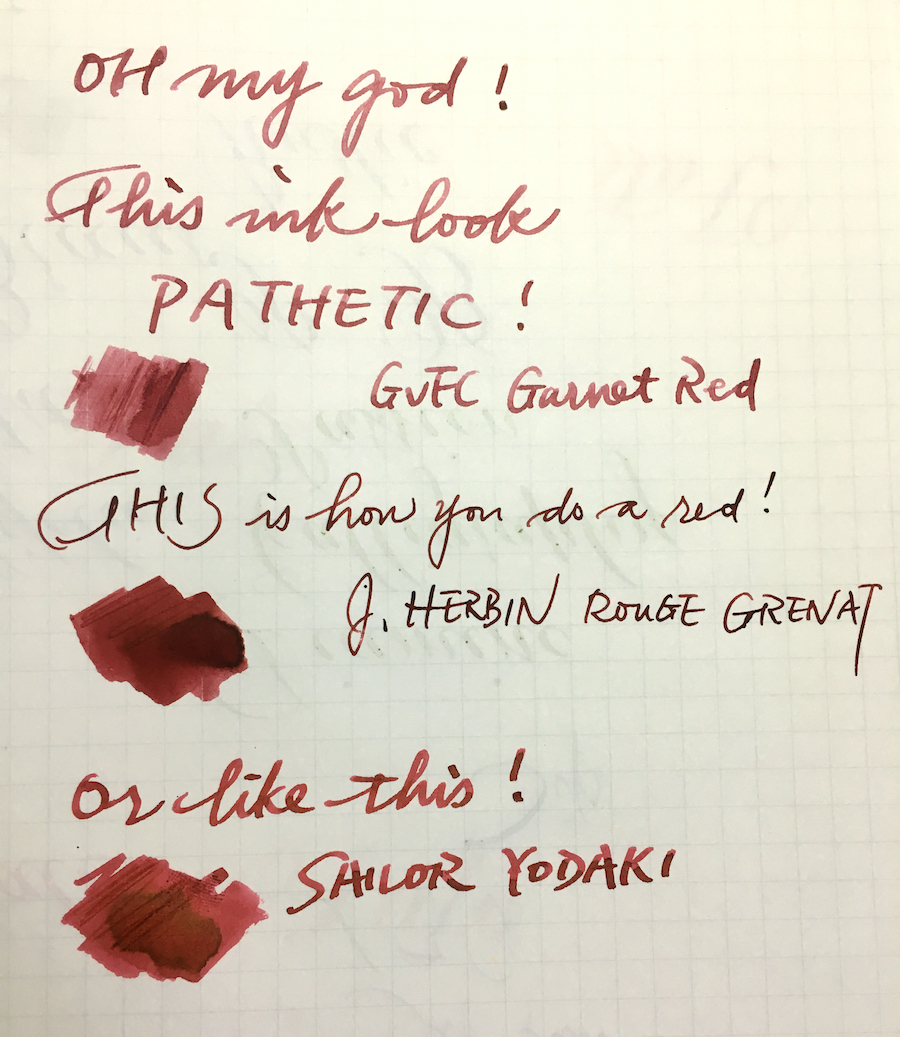 OH my god !
This ink look
PATHETIC !
GvFC Garnet Red
THIS is how you do a red !
J. HERBIN ROUGE GRENAT
Or like this !
SAILOR YODAKI